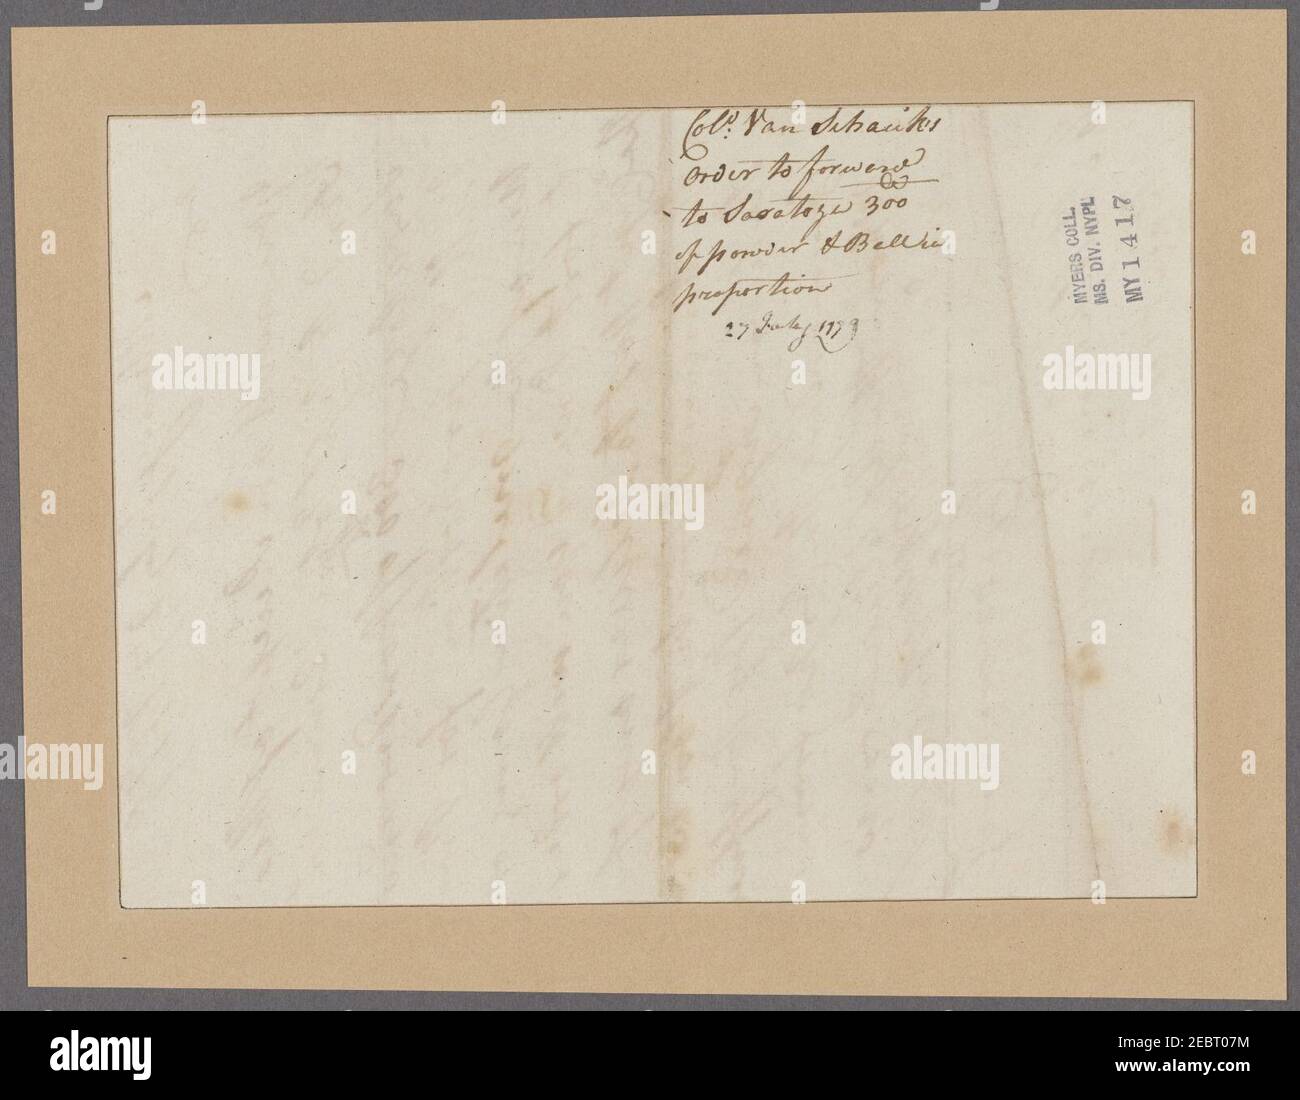 Col.º Van Schaick's
order to forward
to Saratoga 300 lb
of powder & Ball in
proportion
27 July 1779
MYERS COLL.
MS. DIV. NYPL
MY 1417
alamy
alamy
Image ID: 2EBT07M
www.alamy.com